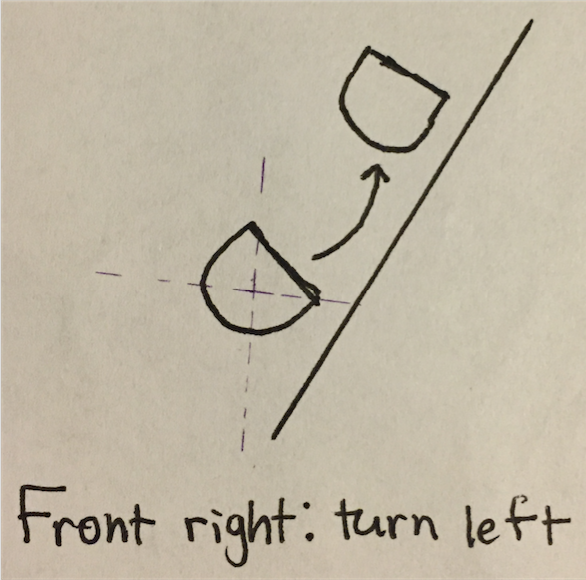 Front right: turn left